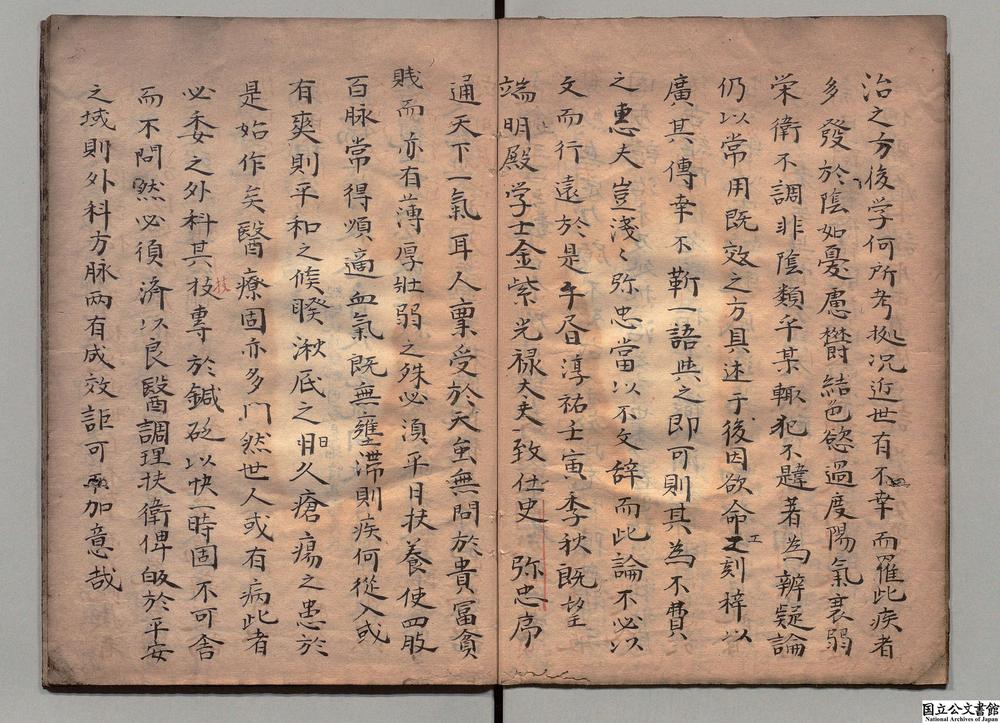 治之方後学何所考拠况近世有不幸而罹此疾者
多發於陰如憂慮欝結色慾過度陽氣衰弱
栄衛不調非陰類乎某輙犯不韙著為辨疑論
仍以常用既效之方具述于後因欲命工刻梓以
廣其傳幸不靳一語與之即可則其為不費
之惠夫豈淺〻弥忠當以不文辞而此論不必以
文而行遠於是乎書淳祐壬寅季秋既望
端明殿学士金紫光禄大夫致仕史 弥忠序
通天下一氣耳人稟受於天虽無問於貴冨貧
賎而亦有薄厚壯弱之殊必須平日扶養使四股
百脉常得順適血氣既無壅滞則疾何從入或
有爽則平和之候暌湫底之日久瘡瘍之患於
是始作矣醫療固亦多門然世人或有病此者
必委之外科其技專於鍼砭以快一時固不可舎
而不問然必須済以良醫調理扶衛俾皈於平安
之域則外科方脉两有成效詎可不加意哉
国立公文書館
National Archives of Japan